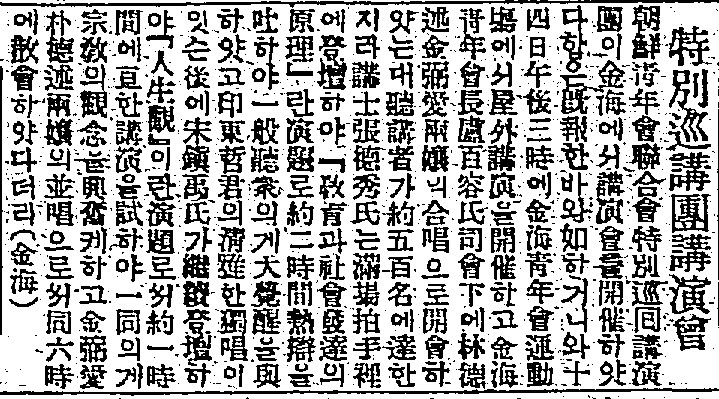 特別巡講團講演會
朝鮮靑年會聯合會特別巡回講演
團이金海에서講演會를開催하얏
다함은旣報한바와如하거니와十
四日午後三時에金海靑年會運動
場에서屋外講演을開催하고金海
靑年會長盧百容氏司會下에林德
述金弼愛兩孃의合唱으로開會하
얏는대聽講者가約五百名에達한
지라講士張德秀氏는滿場拍手裡
에登壇하야『敎育과社會發達의
原理』란演題로約二時間熱辯을
吐하야一般聽衆의게大覺醒을與
하얏고印東哲君의淸雅한獨唱이
잇슨後에宋鎭禹氏가繼續登壇하
야『人生觀』이란演題로써約一時
間에亘한講演을試하야一同의게
宗敎의觀念을興奮케하고金弼愛
朴德述兩孃의並唱으로써同六時
에散會하얏다더라(金海)